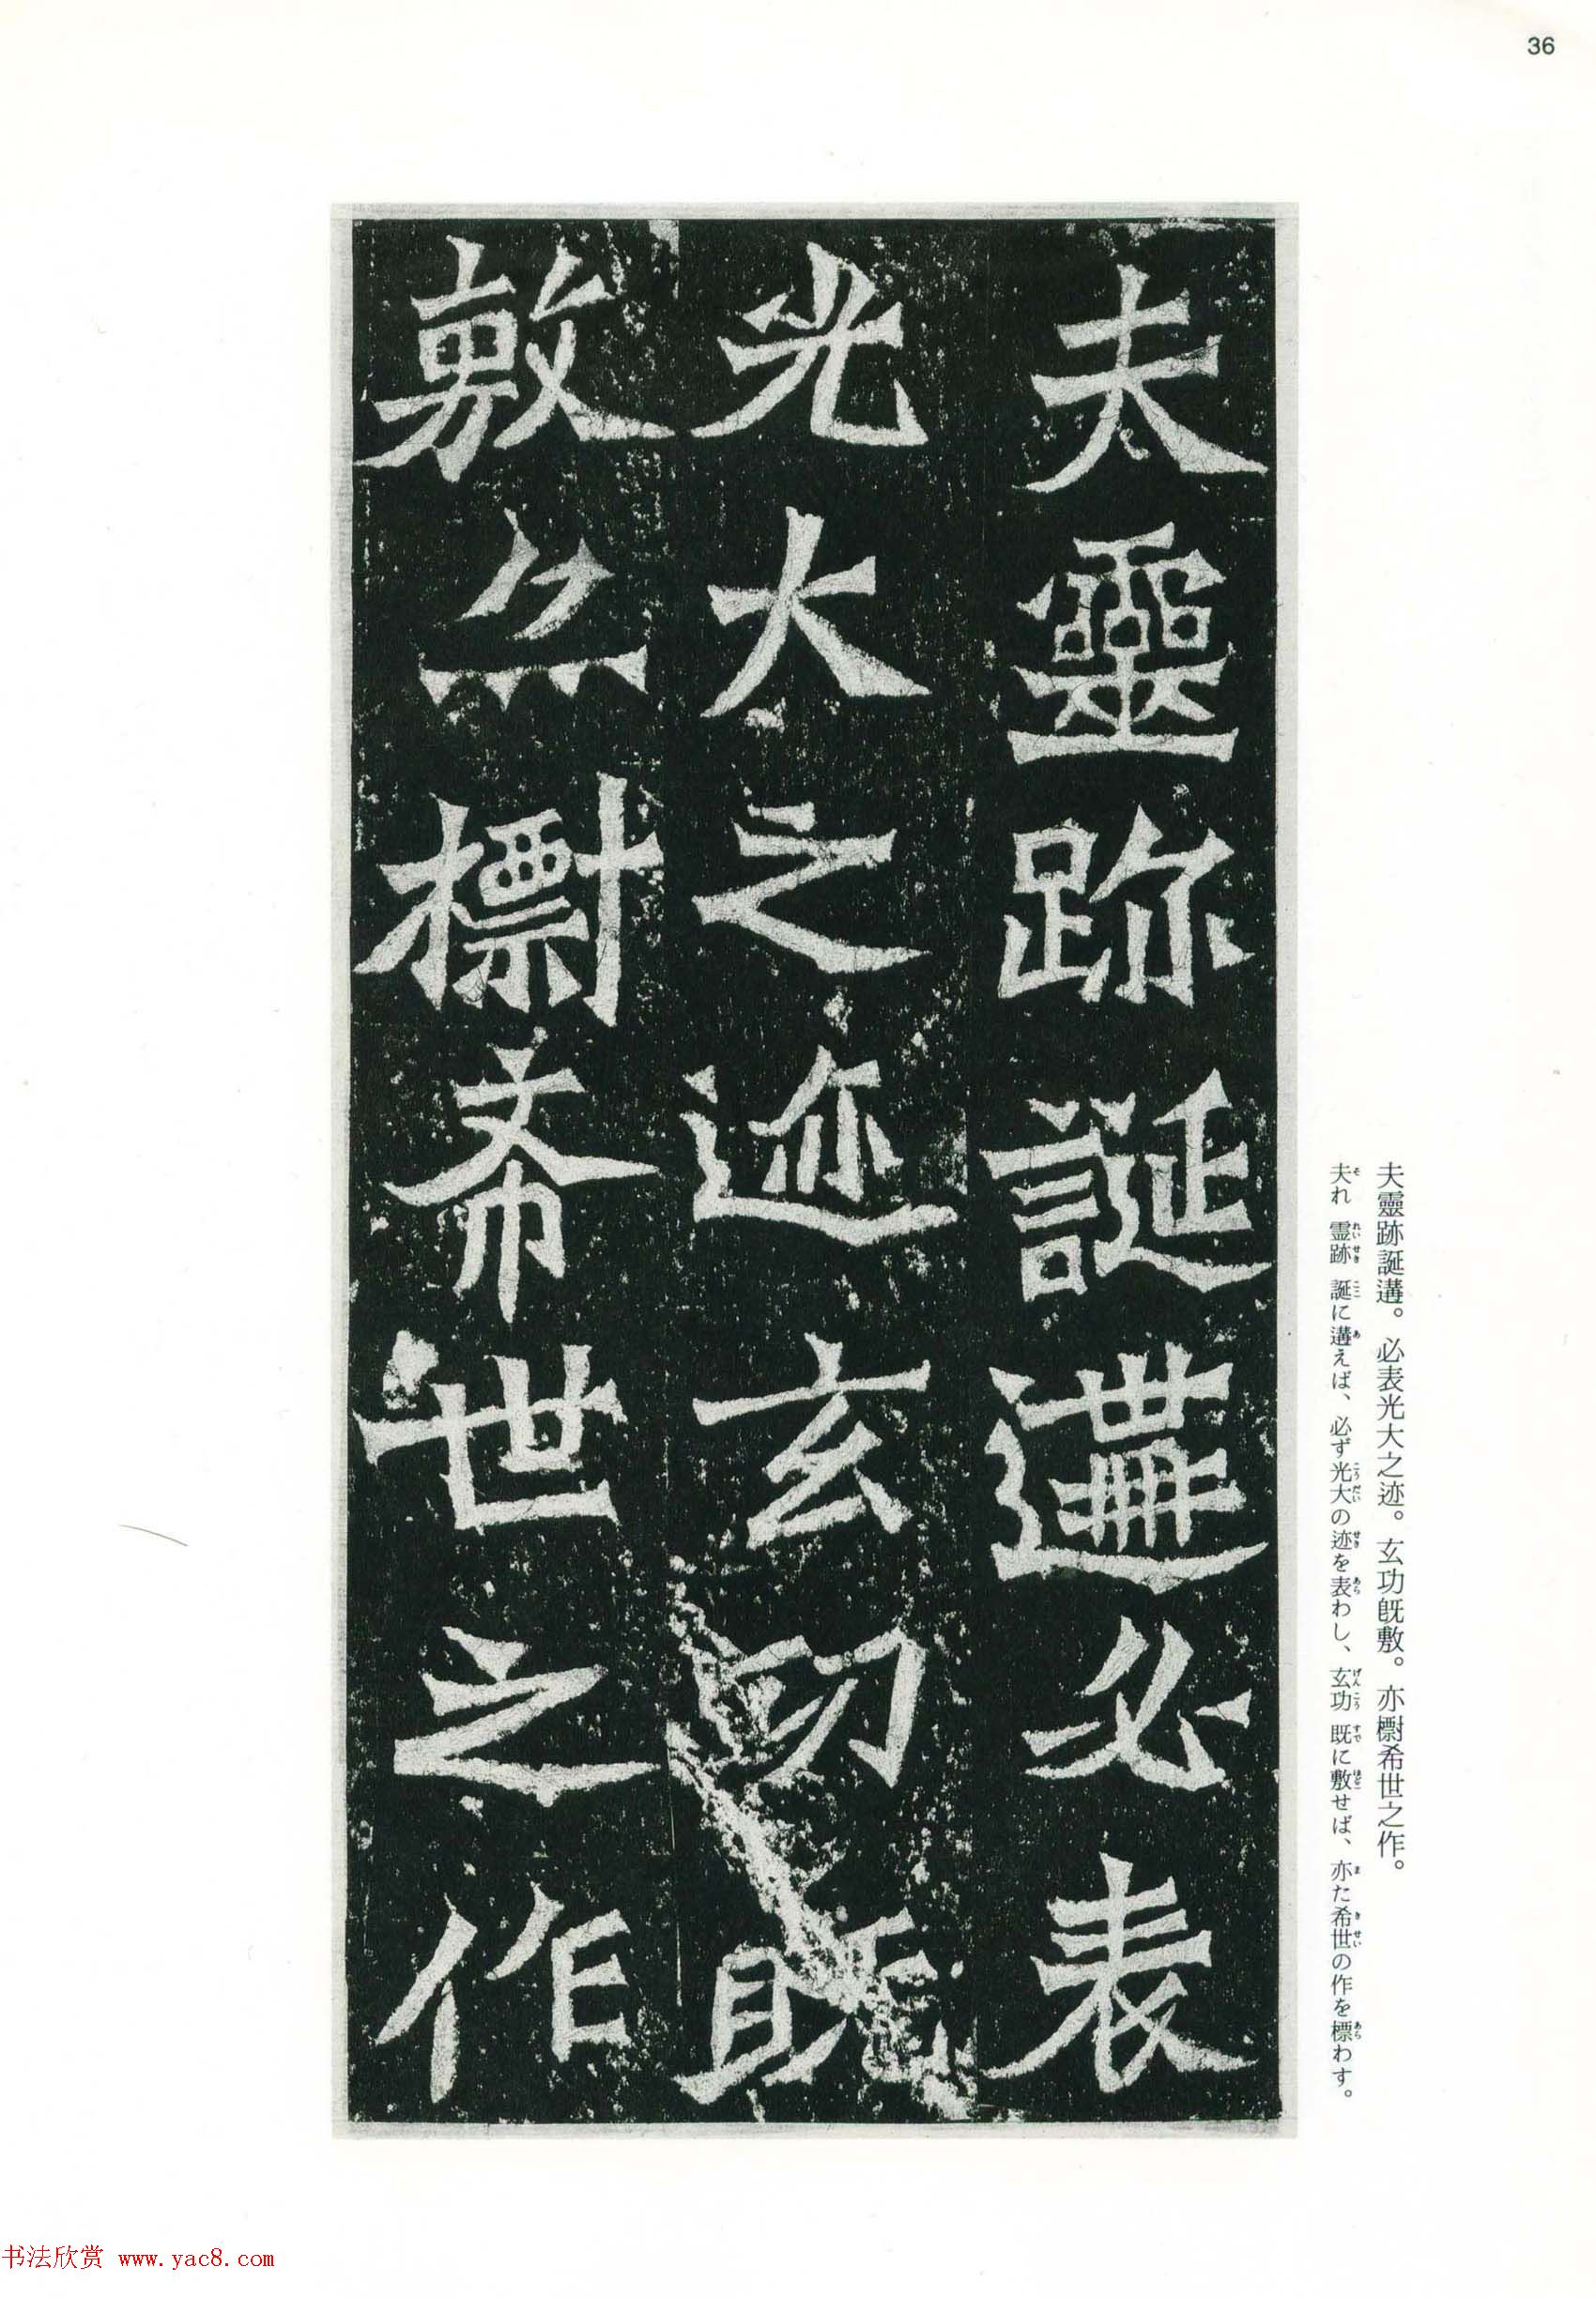 36
夫靈跡誕遘必表
光大之迹玄功既
敷亦㯳希世之作
夫靈跡誕遘。必表光大之迹。玄功既敷。亦㯳希世之作。
夫れ 霊跡 誕に遘えば、必ず光大の迹を表わし、玄功 既に敷せば、亦た希世の作を標わす。
书法欣赏 www.yac8.com